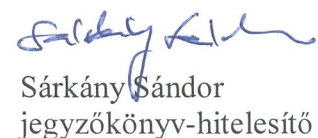 Sárkány Sándor
jegyzőkönyv-hitelesítő